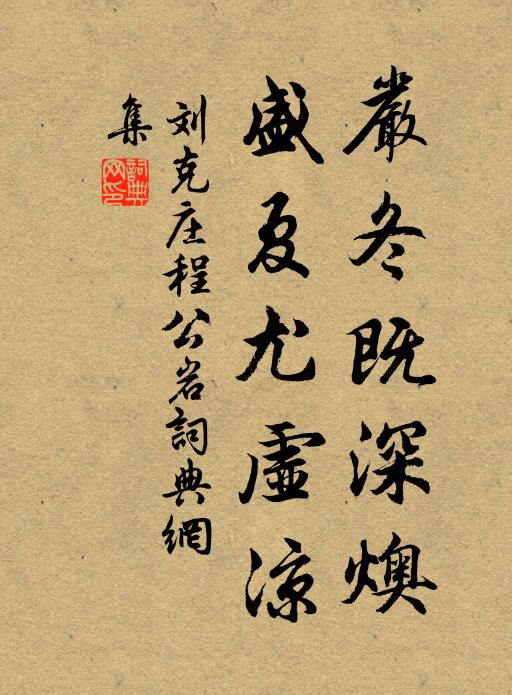 嚴冬既深燠
盛夏尤虛涼
刘克庄程公岩詞典網
集
詞典
网印